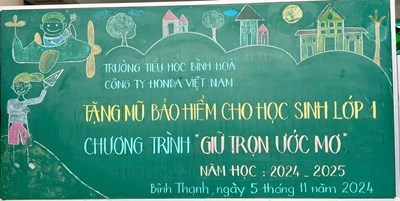 TRƯỜNG TIỂU HỌC BÌNH HOÀ
CÔNG TY HONDA VIỆT NAM
TẶNG MŨ BẢO HIỂM CHO HỌC SINH LỚP 1
CHƯƠNG TRÌNH "GIỮ TRỌN ƯỚC MƠ"
NĂM HỌC : 2024 - 2025
Bình Thạnh, ngày 5 tháng 11 năm 2024